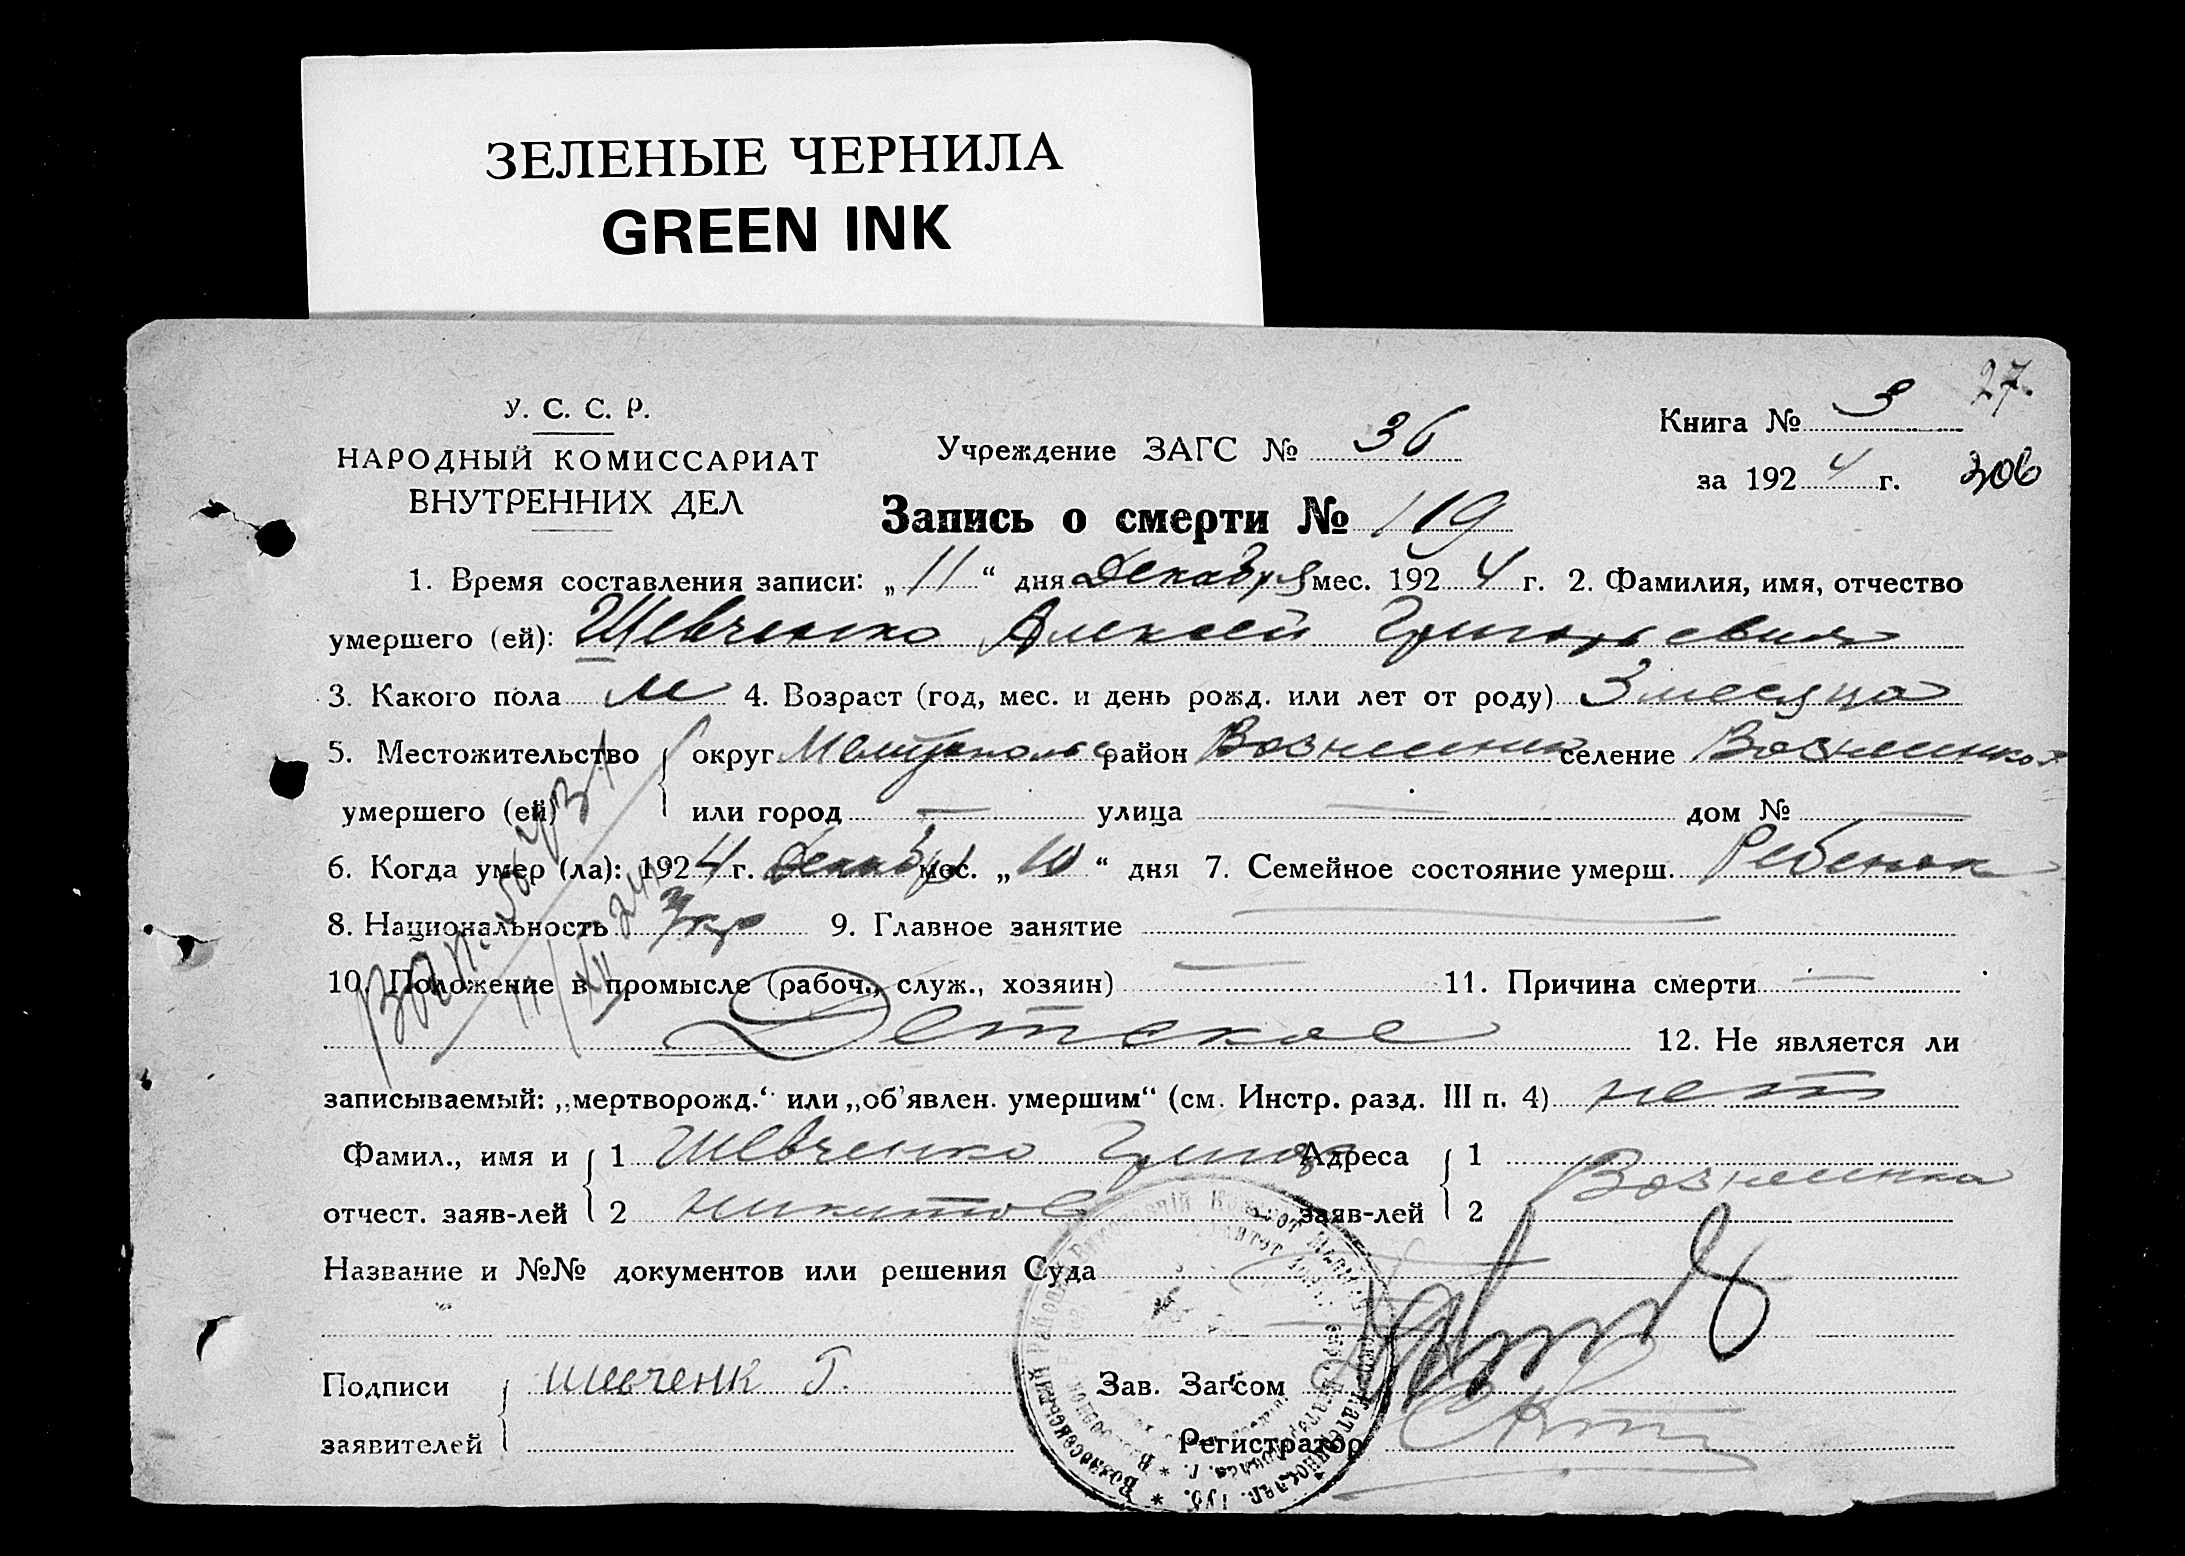 ЗЕЛЕНЫЕ ЧЕРНИЛА
GREEN INK
27.
У. С. С. Р.
НАРОДНЫЙ КОМИССАРИАТ
ВНУТРЕННИХ ДЕЛ
Учреждение ЗАГС № 36
Книга № 3
за 1924 г. 306
Запись о смерти № 119
1. Время составления записи: „11“ дня Декабря мес. 1924 г. 2. Фамилия, имя, отчество
умершего (ей): Шевченко Алексей Григорьевич
3. Какого пола м 4. Возраст (год, мес. и день рожд. или лет от роду) 3 месяца
5. Местожительство { округ Мелитопольс район Вознесенка селение Вознесенка
умершего (ей) или город — улица — дом № —
6. Когда умер (ла): 1924 г. Декабря мес. „10“ дня 7. Семейное состояние умерш. Ребенок
8. Национальность Укр 9. Главное занятие —
10. Положение в промысле (рабоч., служ., хозяин) — 11. Причина смерти —
Детское 12. Не является ли
записываемый: „мертворожд.“ или „об'явлен. умершим“ (см. Инстр. разд. III п. 4) нет
Фамил., имя и { 1 Шевченко Григор Адреса { 1 Вознесенка
отчест. заяв-лей 2 Никитов заяв-лей 2
Название и №№ документов или решения Суда
Подписи { Шевченк Г. Зав. Загсом
заявителей Регистратор